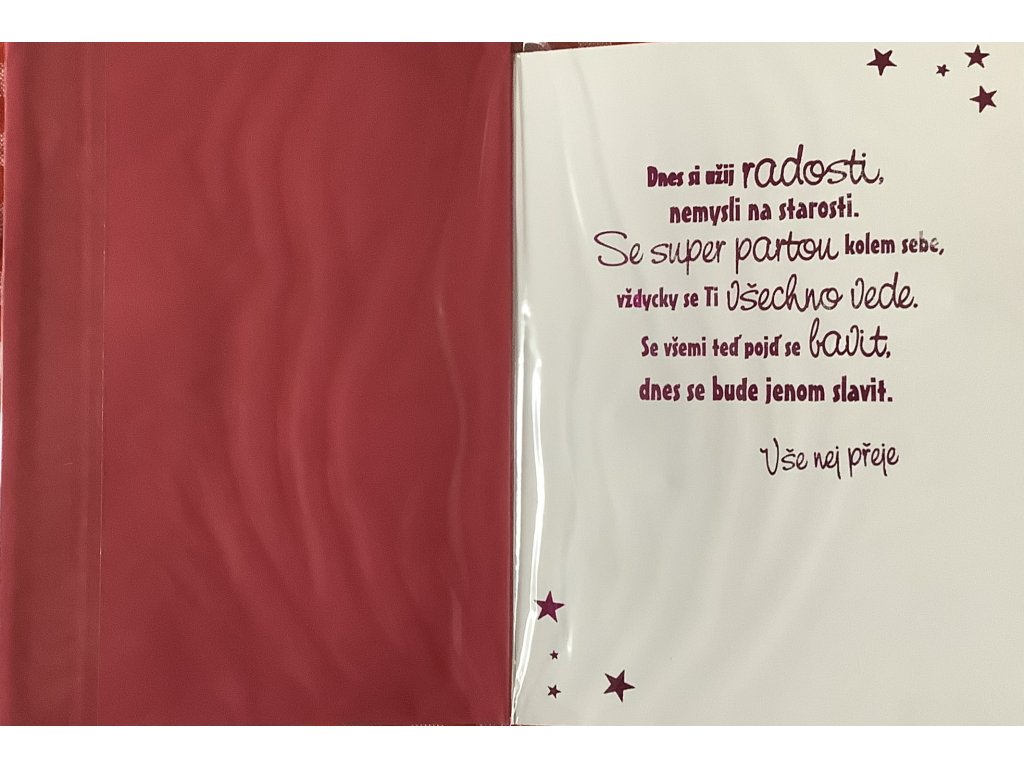 Dnes si užij radosti,
nemysli na starosti.
Se super partou kolem sebe,
vždycky se Ti všechno vede.
Se všemi teď pojď se bavit,
dnes se bude jenom slavit.
Vše nej přeje